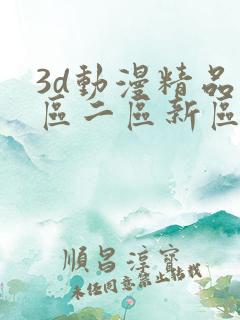 3d動漫精品
區二區新區
順昌淳寶
未任同意禁止转找